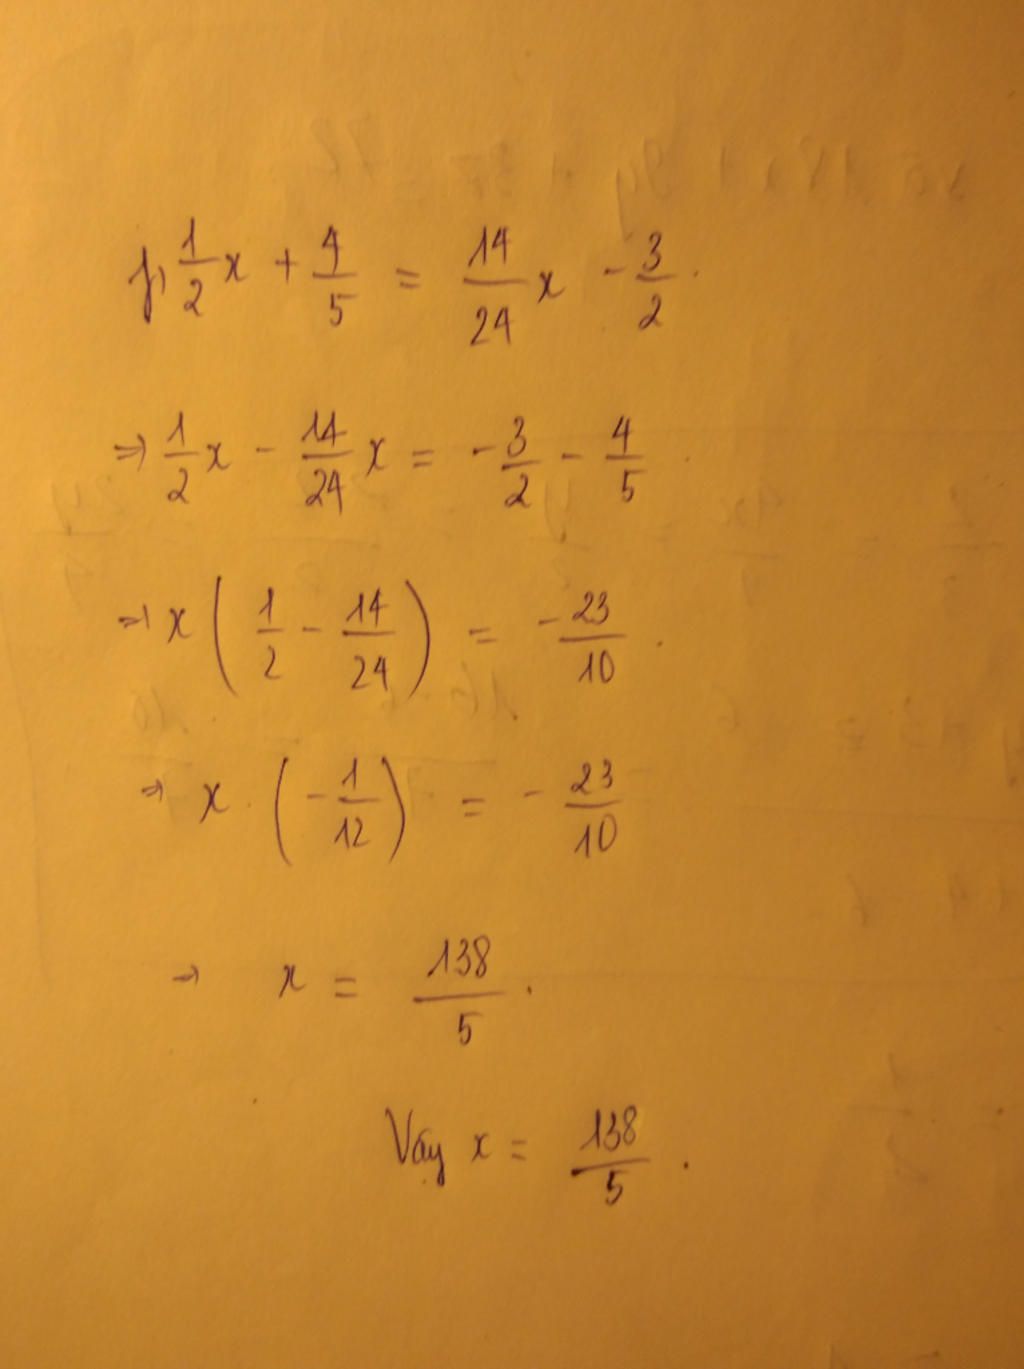 f, 1/2 x + 4/5 = 14/24 x - 3/2.
=> 1/2 x - 14/24 x = - 3/2 - 4/5.
=> x ( 1/2 - 14/24 ) = - 23/10.
=> x . ( - 1/12 ) = - 23/10
=> x = 138/5.
Vay x = 138/5.